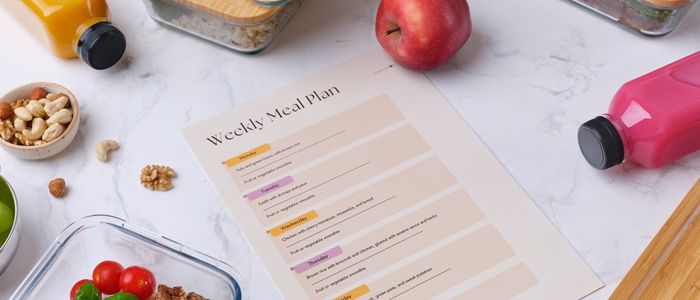 Weekly Meal Plan
Monday
Tofu and green bean with brown rice
Fruit or vegetable smoothie
Tuesday
Fusilli with shrimps and peas
Fruit or vegetable smoothie
Wednesday
Chicken with cherry tomatoes, mozzarella, and bread
Fruit or vegetable smoothie
Thursday
Brown rice with broccoli and chicken, glazed with sesame seeds and herbs
Fruit or vegetable smoothie
green peas, and sweet potatoes